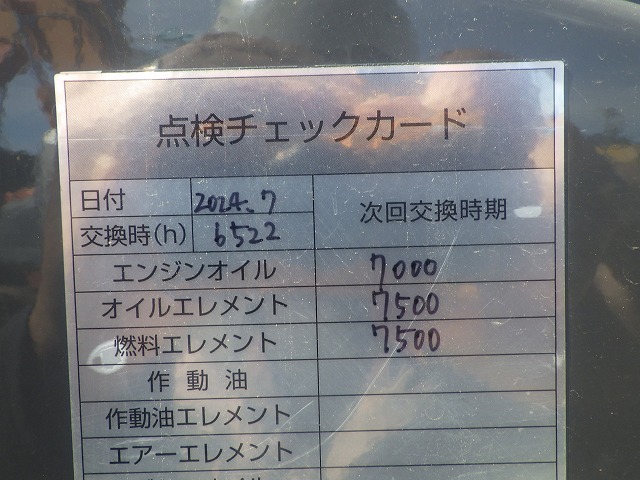 点検チェックカード
日付 2024.7
交換時(h) 6522
次回交換時期
エンジンオイル 7000
オイルエレメント 7500
燃料エレメント 7500
作動油
作動油エレメント
エアーエレメント